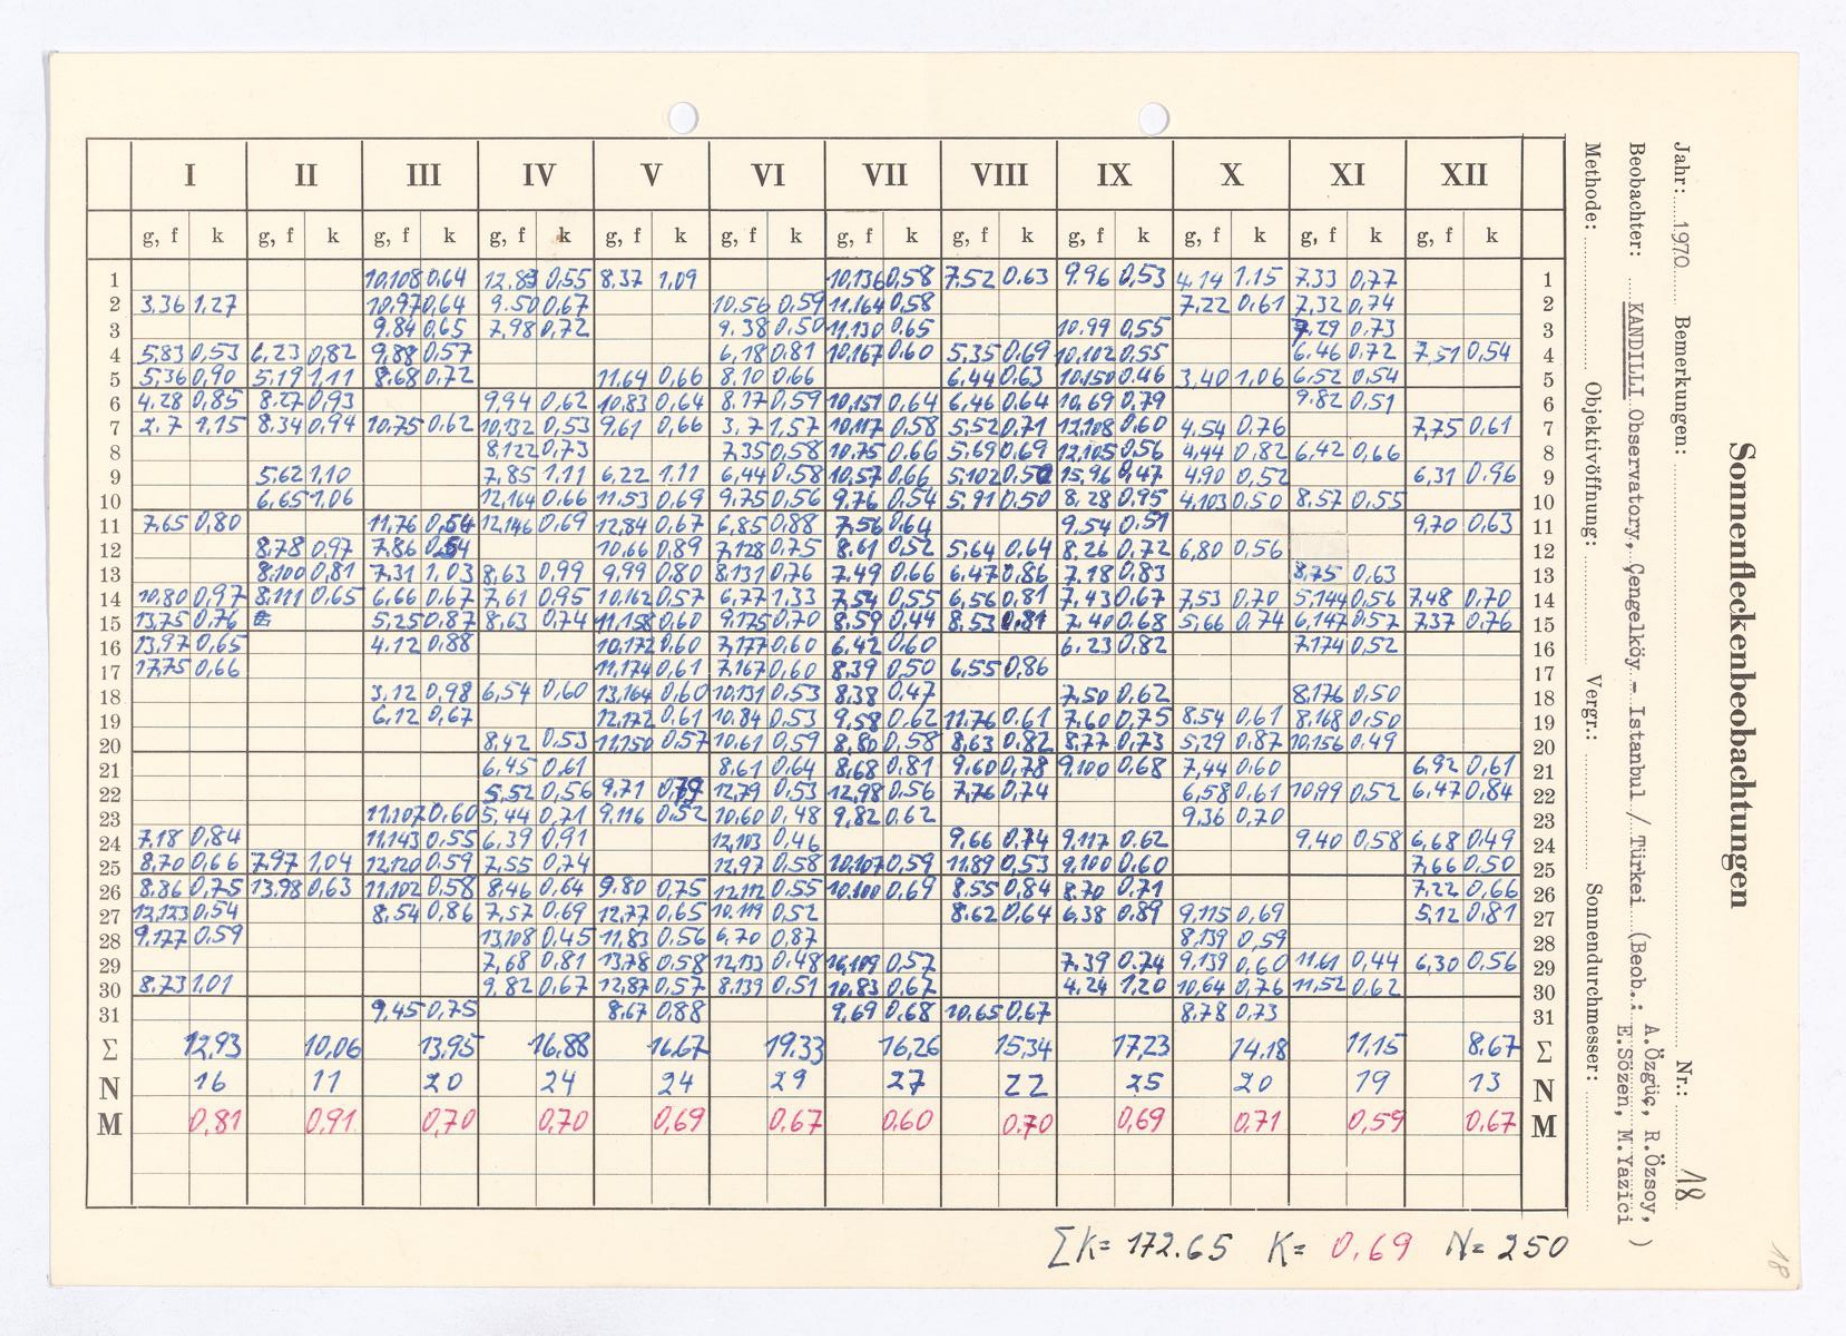 I II III IV V VI VII VIII IX X XI XII
g, f k g, f k g, f k g, f k g, f k g, f k g, f k g, f k g, f k g, f k g, f k g, f k
1 10,108 0,64 12.83 0,55 8.37 1,09 10,136 0,58 7.52 0.63 9.96 0,53 4,14 1.15 7.33 0,77 1
2 3,36 1,27 10,97 0,64 9.50 0,67 10,56 0,59 11,164 0,58 7,22 0,61 7,32 0,74 2
3 9.84 0,65 7,98 0,72 9.38 0,50 11,130 0,65 10.99 0,55 7.29 0,73 3
4 5,83 0,53 6,23 0,82 9,88 0,57 6,18 0.81 10,167 0.60 5,35 0,69 10,102 0.55 6.46 0.72 7,51 0,54 4
5 5,36 0,90 5,19 1,11 8.68 0,72 11,64 0,66 8.10 0,66 6,44 0.63 10,150 0.46 3,40 1,06 6,52 0,54 5
6 4.28 0,85 8.27 0,93 9,94 0,62 10,83 0,64 8.17 0,59 10,151 0,64 6,46 0.64 10,69 0,79 9.82 0,51 6
7 2.7 1,15 8.34 0,94 10,75 0.62 10,132 0,53 9,61 0,66 3,7 1,57 10,117 0.58 5,52 0,71 12,108 0,60 4,54 0,76 7,75 0,61 7
8 8,122 0,73 7,35 0,58 10.75 0.66 5.69 0,69 12,105 0,56 4,44 0,82 6,42 0,66 8
9 5,62 1,10 7,85 1.11 6,22 1.11 6,44 0.58 10,57 0,66 5,102 0,50 15,96 0,47 4,90 0,52 6,31 0,96 9
10 6,65 1,06 12,164 0.66 11,53 0,69 9,75 0,56 9,76 0,54 5,91 0,50 8,28 0,95 4,103 0,50 8.57 0,55 10
11 7,65 0,80 11,76 0,54 12,146 0,69 12,84 0,67 6,85 0,88 7,56 0,64 9,54 0.51 9,70 0,63 11
12 8,78 0,97 7.86 0,54 10,66 0,89 7,128 0,75 8.61 0,52 5,64 0,64 8,26 0,72 6,80 0,56 12
13 8,100 0,81 7,31 1,03 8,63 0,99 9,99 0,80 8.131 0,76 7.49 0,66 6.47 0,86 7,18 0,83 8,75 0,63 13
14 10,80 0,97 8,111 0,65 6,66 0,67 7,61 0,95 10,162 0,57 6,77 1,33 7,54 0,55 6,56 0,81 7,43 0,67 7,53 0,70 5,144 0,56 7,48 0,70 14
15 13,75 0,76 5,25 0,87 8,63 0,74 11,158 0,60 9,175 0,70 8.59 0,44 8.53 0.81 7,40 0.68 5,66 0,74 6,147 0,57 7,37 0,76 15
16 13,97 0,65 4.12 0,88 10,172 0,60 7,177 0,60 6.42 0,60 6.23 0,82 7,174 0,52 16
17 17,75 0,66 11,174 0,61 7,167 0,60 8,39 0,50 6,55 0,86 17
18 3,12 0,98 6,54 0,60 13,164 0,60 10,131 0,53 8,38 0,47 7,50 0,62 8,176 0,50 18
19 6.12 0,67 12,172 0,61 10,84 0,53 9,58 0,62 11,76 0,61 7,60 0,75 8.54 0,61 8,168 0,50 19
20 8,42 0,53 11,150 0,57 10,61 0,59 8,80 0,58 8,63 0.82 8,77 0,73 5,29 0,87 10,156 0,49 20
21 6,45 0,61 8,61 0,64 8,68 0,81 9,60 0,78 9,100 0,68 7,44 0,60 6,92 0,61 21
22 5,52 0,56 9,71 0,79 12,79 0,53 12,98 0,56 7,76 0,74 6,58 0,61 10,99 0,52 6,47 0,84 22
23 11,107 0,60 5,44 0,71 9,116 0,52 10,60 0,48 9,82 0.62 9,36 0,70 23
24 7,18 0,84 11,143 0,55 6,39 0,91 12,103 0,46 9,66 0,74 9,117 0.62 9,40 0,58 6,68 0,49 24
25 8,70 0,66 7,97 1,04 12,120 0,59 7,55 0,74 11,97 0,58 10,107 0,59 11,89 0,53 9,100 0,60 7,66 0,50 25
26 8.86 0,75 13,98 0,63 11,102 0,58 8,46 0,64 9.80 0,75 12,112 0.55 10,100 0,69 8.55 0,84 8.70 0,71 7,22 0,66 26
27 12,123 0,54 8,54 0,86 7,57 0,69 12,77 0,65 10,119 0,52 8.62 0,64 6,38 0.89 9,115 0,69 5,12 0,81 27
28 9,127 0,59 13,108 0,45 11,83 0,56 6,70 0,87 8,139 0,59 28
29 7,68 0,81 13,78 0,58 12,133 0,48 16,109 0,57 7,39 0.74 9,139 0,60 11.61 0,44 6,30 0,56 29
30 8.73 1.01 9.82 0,67 12,87 0,57 8,139 0,51 10,83 0,67 4,24 1,20 10,64 0,76 11,52 0,62 30
31 9,45 0,75 8,67 0,88 9,69 0,68 10,65 0,67 8.78 0,73 31
Σ 12,93 10,06 13,95 16,88 16,67 19,33 16,26 15,34 17,23 14,18 11,15 8,67 Σ
N 16 11 20 24 24 29 27 22 25 20 19 13 N
M 0,81 0,91 0,70 0,70 0,69 0,67 0.60 0.70 0,69 0,71 0,59 0,67 M
Σk= 172.65 K= 0,69 N= 250
Sonnenfleckenbeobachtungen
Jahr: 1970 Bemerkungen: Nr.: 18
Beobachter: KANDILLI Observatory, Çengelköy - Istanbul / Türkei (Beob.: A.Özgüç, R.Özsoy,
E.Sözen, M.Yazici )
Methode: Objektivöffnung: Vergr.: Sonnendurchmesser:
18